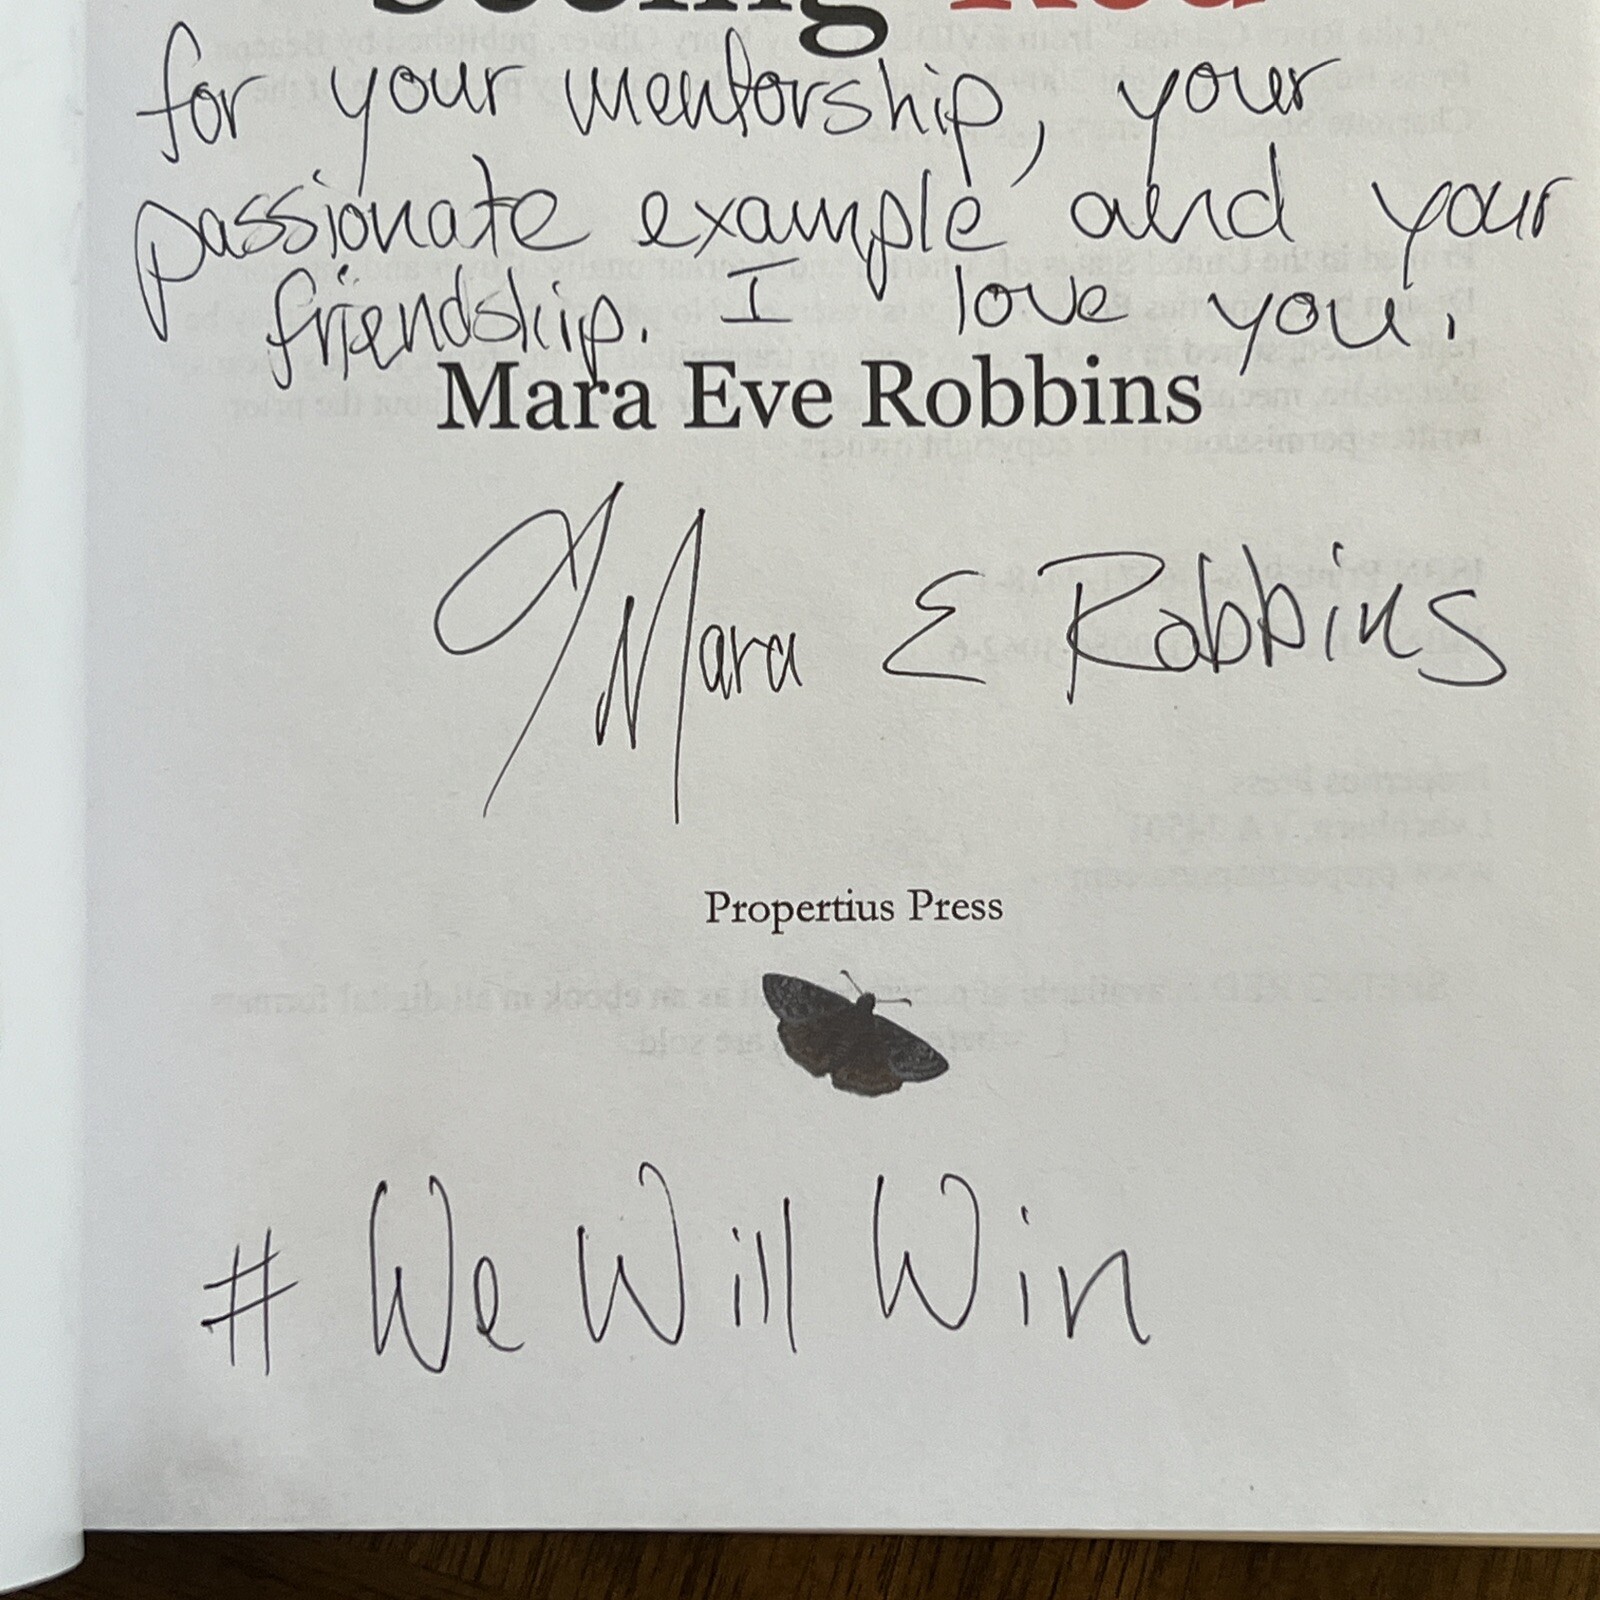 Seeing Red
for your mentorship, your
passionate example and your
friendship. I love you.
Mara Eve Robbins
Mara E Robbins
Propertius Press
# We Will Win